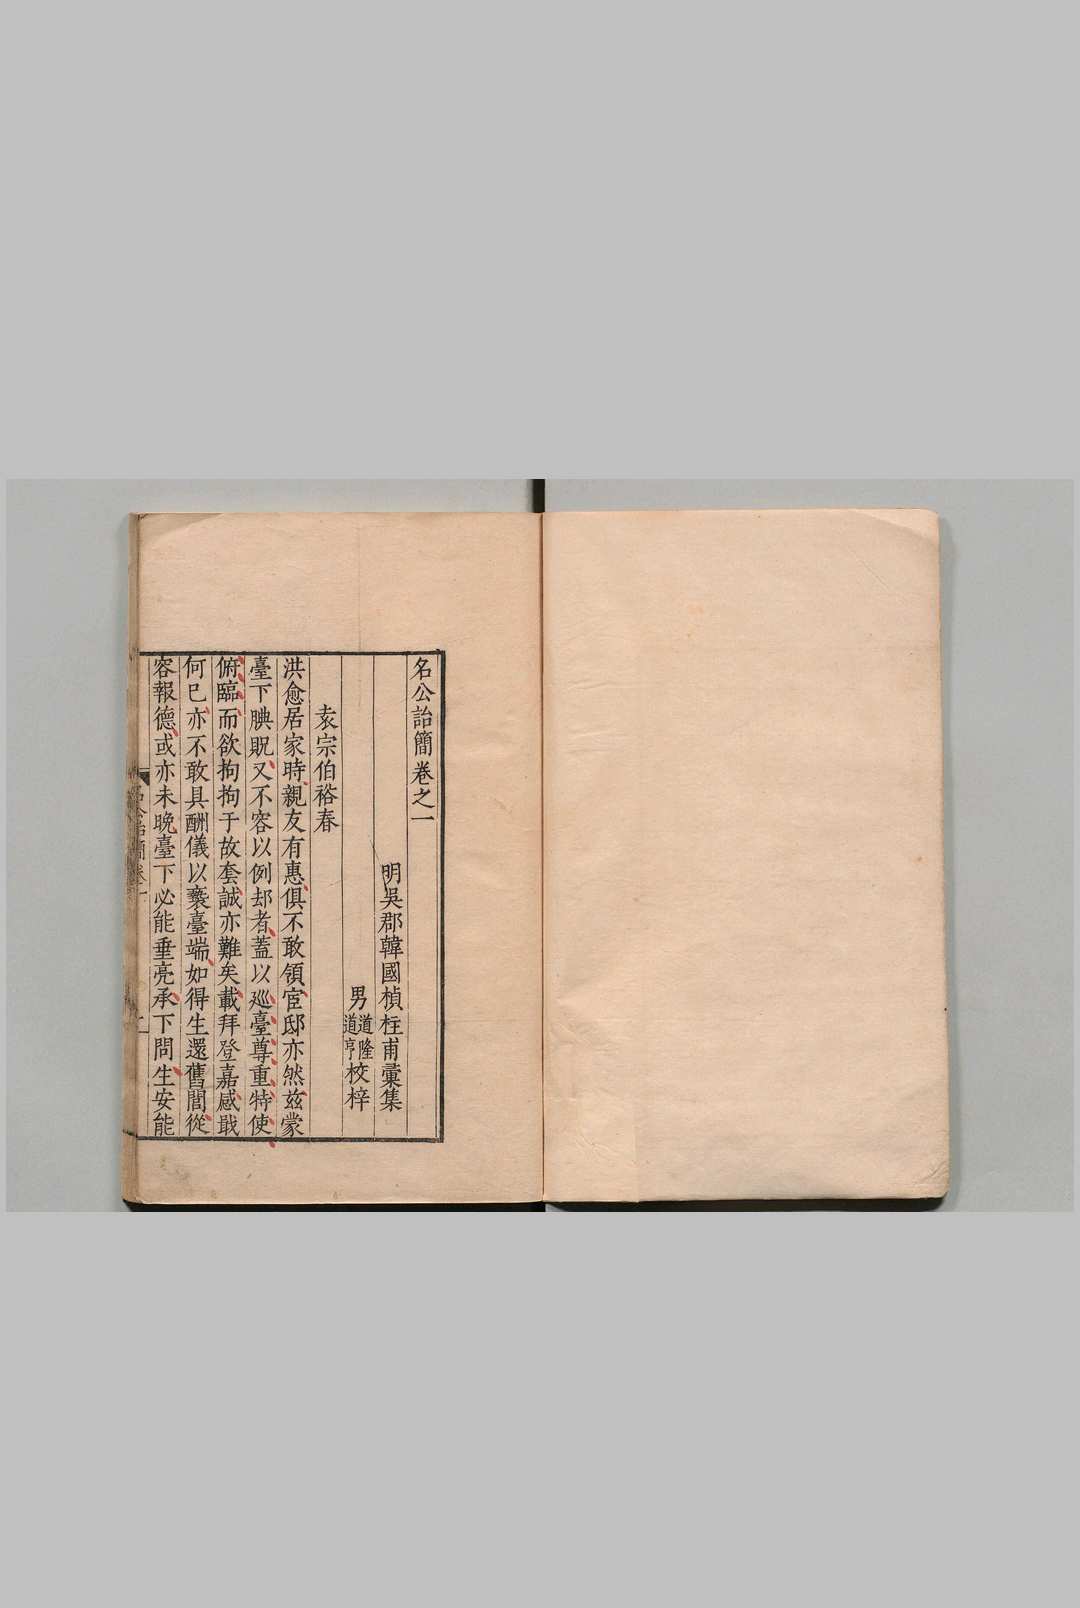 名公詒簡卷之一
明吳郡韓國楨柱甫彚集
男道隆道亨校梓
袁宗伯裕春
洪愈居家時親友有惠俱不敢領宦邸亦然玆蒙
臺下腆貺又不容以例却者蓋以巡臺尊重特使
俯臨而欲拘拘于故套誠亦難矣載拜登嘉感戢
何已亦不敢具酬儀以褻臺端如得生還舊閭從
容報德或亦未晚臺下必能垂亮承下問生安能